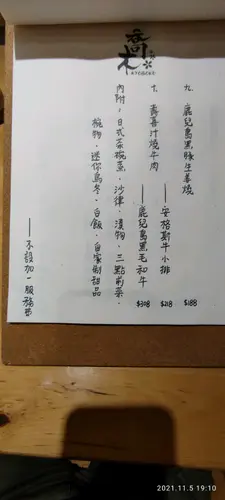 喬木
九、鹿兒島黑豚生姜燒 $188
十、壽喜汁燒牛肉
——安格斯牛小排 $218
——鹿兒島黑毛和牛 $308
內附，日式茶碗蒸．沙律．漬物．三點前菜．
椀物．迷你烏冬．白飯．自家制甜品
——不設加一服務費
2021.11.5 19:10